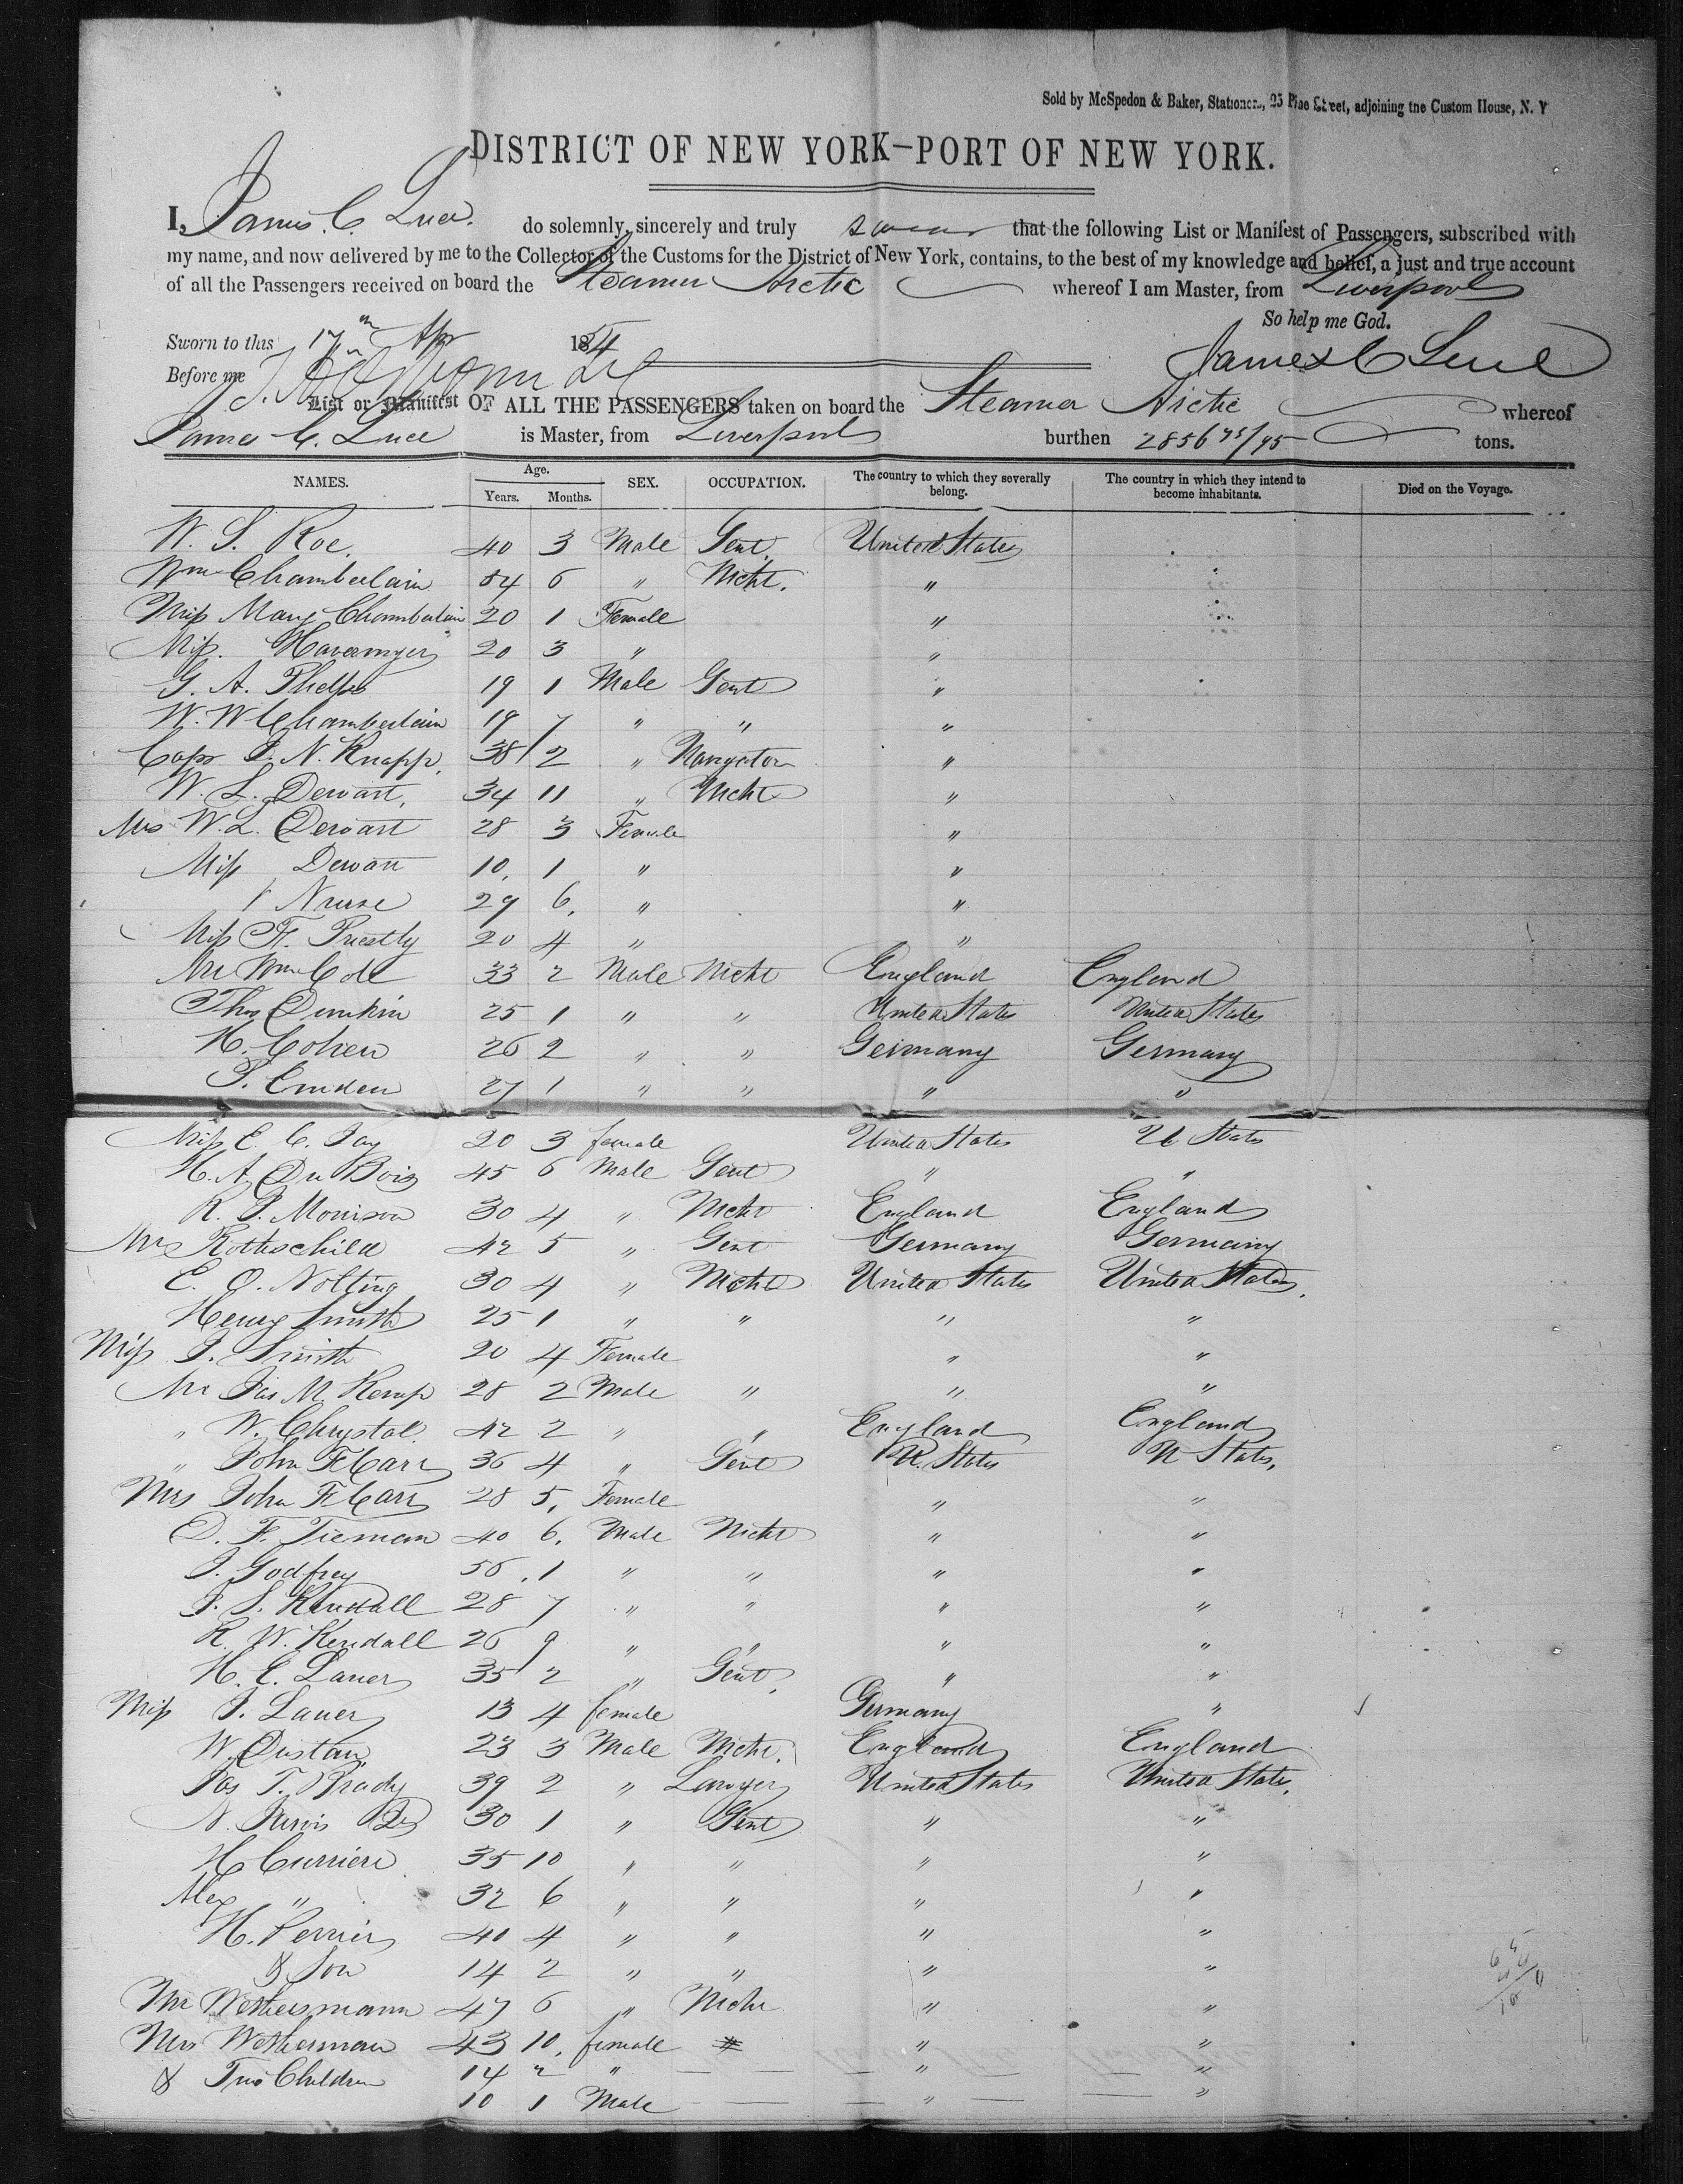 Sold by McSpedon & Baker, Stationers, 25 Pine Street, adjoining the Custom House, N. Y
DISTRICT OF NEW YORK—PORT OF NEW YORK.
I, James. C. Luce. do solemnly, sincerely and truly swear that the following List or Manifest of Passengers, subscribed with
my name, and now delivered by me to the Collector of the Customs for the District of New York, contains, to the best of my knowledge and belief, a just and true account
of all the Passengers received on board the Steamer Arctic whereof I am Master, from Liverpool
So help me God.
Sworn to this 17th Apr 1854
James C Luce
Before me
List or Manifest OF ALL THE PASSENGERS taken on board the Steamer Arctic whereof
James C. Luce is Master, from Liverpool burthen 2856 75/95 tons.
NAMES. Age. Years. Months. SEX. OCCUPATION. The country to which they severally belong. The country in which they intend to become inhabitants. Died on the Voyage.
W. S. Roe. 40 3 Male Gent. United States
Wm Chamberlain 54 6 " Mcht. "
Miss Mary Chamberlain 20 1 Female "
Miss. Havemyer 20 3 " "
G. A. Phelps 19 1 Male Gent "
W. W Chamberlain 19 7 " " "
Capt J. N. Knapp, 38 2 " Navigator "
W. L. Dewart, 34 11 " Mcht "
Mrs W. L. Dewart 28 3 Female "
Miss Dewart 10, 1 " "
1 Nurse 29 6, " "
Miss F. Priestly 20 4 " "
Mr Wm Cole 33 2 Male Mcht England England
Thos Dunkin 25 1 " " United States United States
H. Cohen 26 2 " " Germany Germany
P. Emden 27 1 " " " "
Miss E. C. Jay 20 3 female United States U States
H. A. Du Bois 45 6 Male Gent " "
R. J. Morrison 30 4 " Mcht England England
Mr Rothschild 42 5 " Gent Germany Germany
E. O. Nolting 30 4 " Mcht United States United States,
Henry Smith 25 1 " " " "
Miss J. Smith 20 4 Female " "
Mr Jas M. Kemp 28 2 Male " " "
" W. Chrystal 42 2 " " England England
" John F Carr 36 4 " Gent U. States U States,
Mrs John F Carr 28 5, Female " "
D. F. Tieman 40 6, Male Mcht " "
J. Godfrey 56, 1 " " " "
J. S. Kendall 28 7 " " " "
R. W. Kendall 26 9 " " " "
H. E. Lauer 35 2 " Gent, " "
Miss J. Lauer 13 4 female Germany "
W. Dustan 23 3 Male Mcht. England England
Jas T. Brady 39 2 " Lawyer United States United States,
N. Jarvis Jr 30 1 " Gent " "
H Curriere 35 10 " " " "
Alex " 32 6 " " " "
H. Perrier 40 4 " " " "
& Son 14 2 " " " "
Mr Wethermann 47 6 " Mcht " "
Mrs Wetherman 43 10, female " "
& Two Children 14 2 " " "
10 1 Male " "